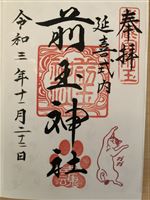 奉拝
延喜式内
前玉神社
令和三年十一月二十二日